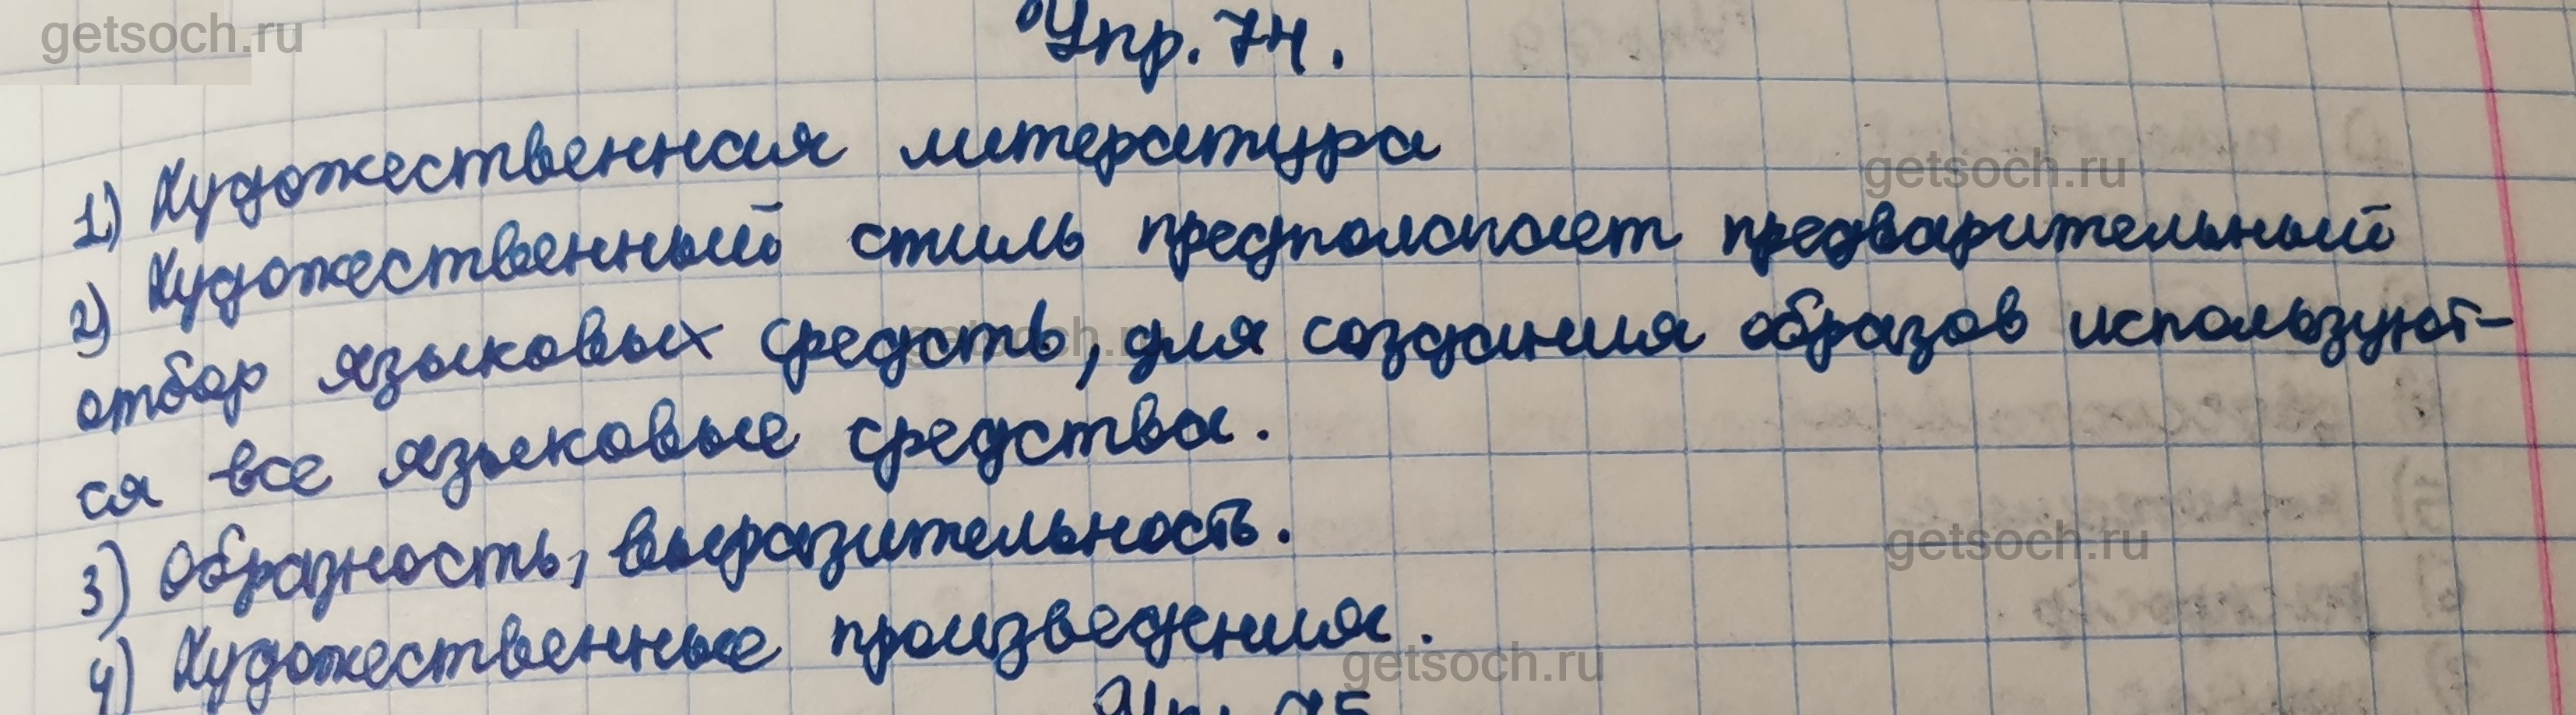 getsoch.ru
Упр. 74.
1) Художественная литература
getsoch.ru
2) Художественный стиль предполагает предварительный
отбор языковых средств, для создания образов используют-
getsoch.ru
ся все языковые средства.
3) Образность, выразительность.
getsoch.ru
4) Художественные произведения.
getsoch.ru
Упр. 75